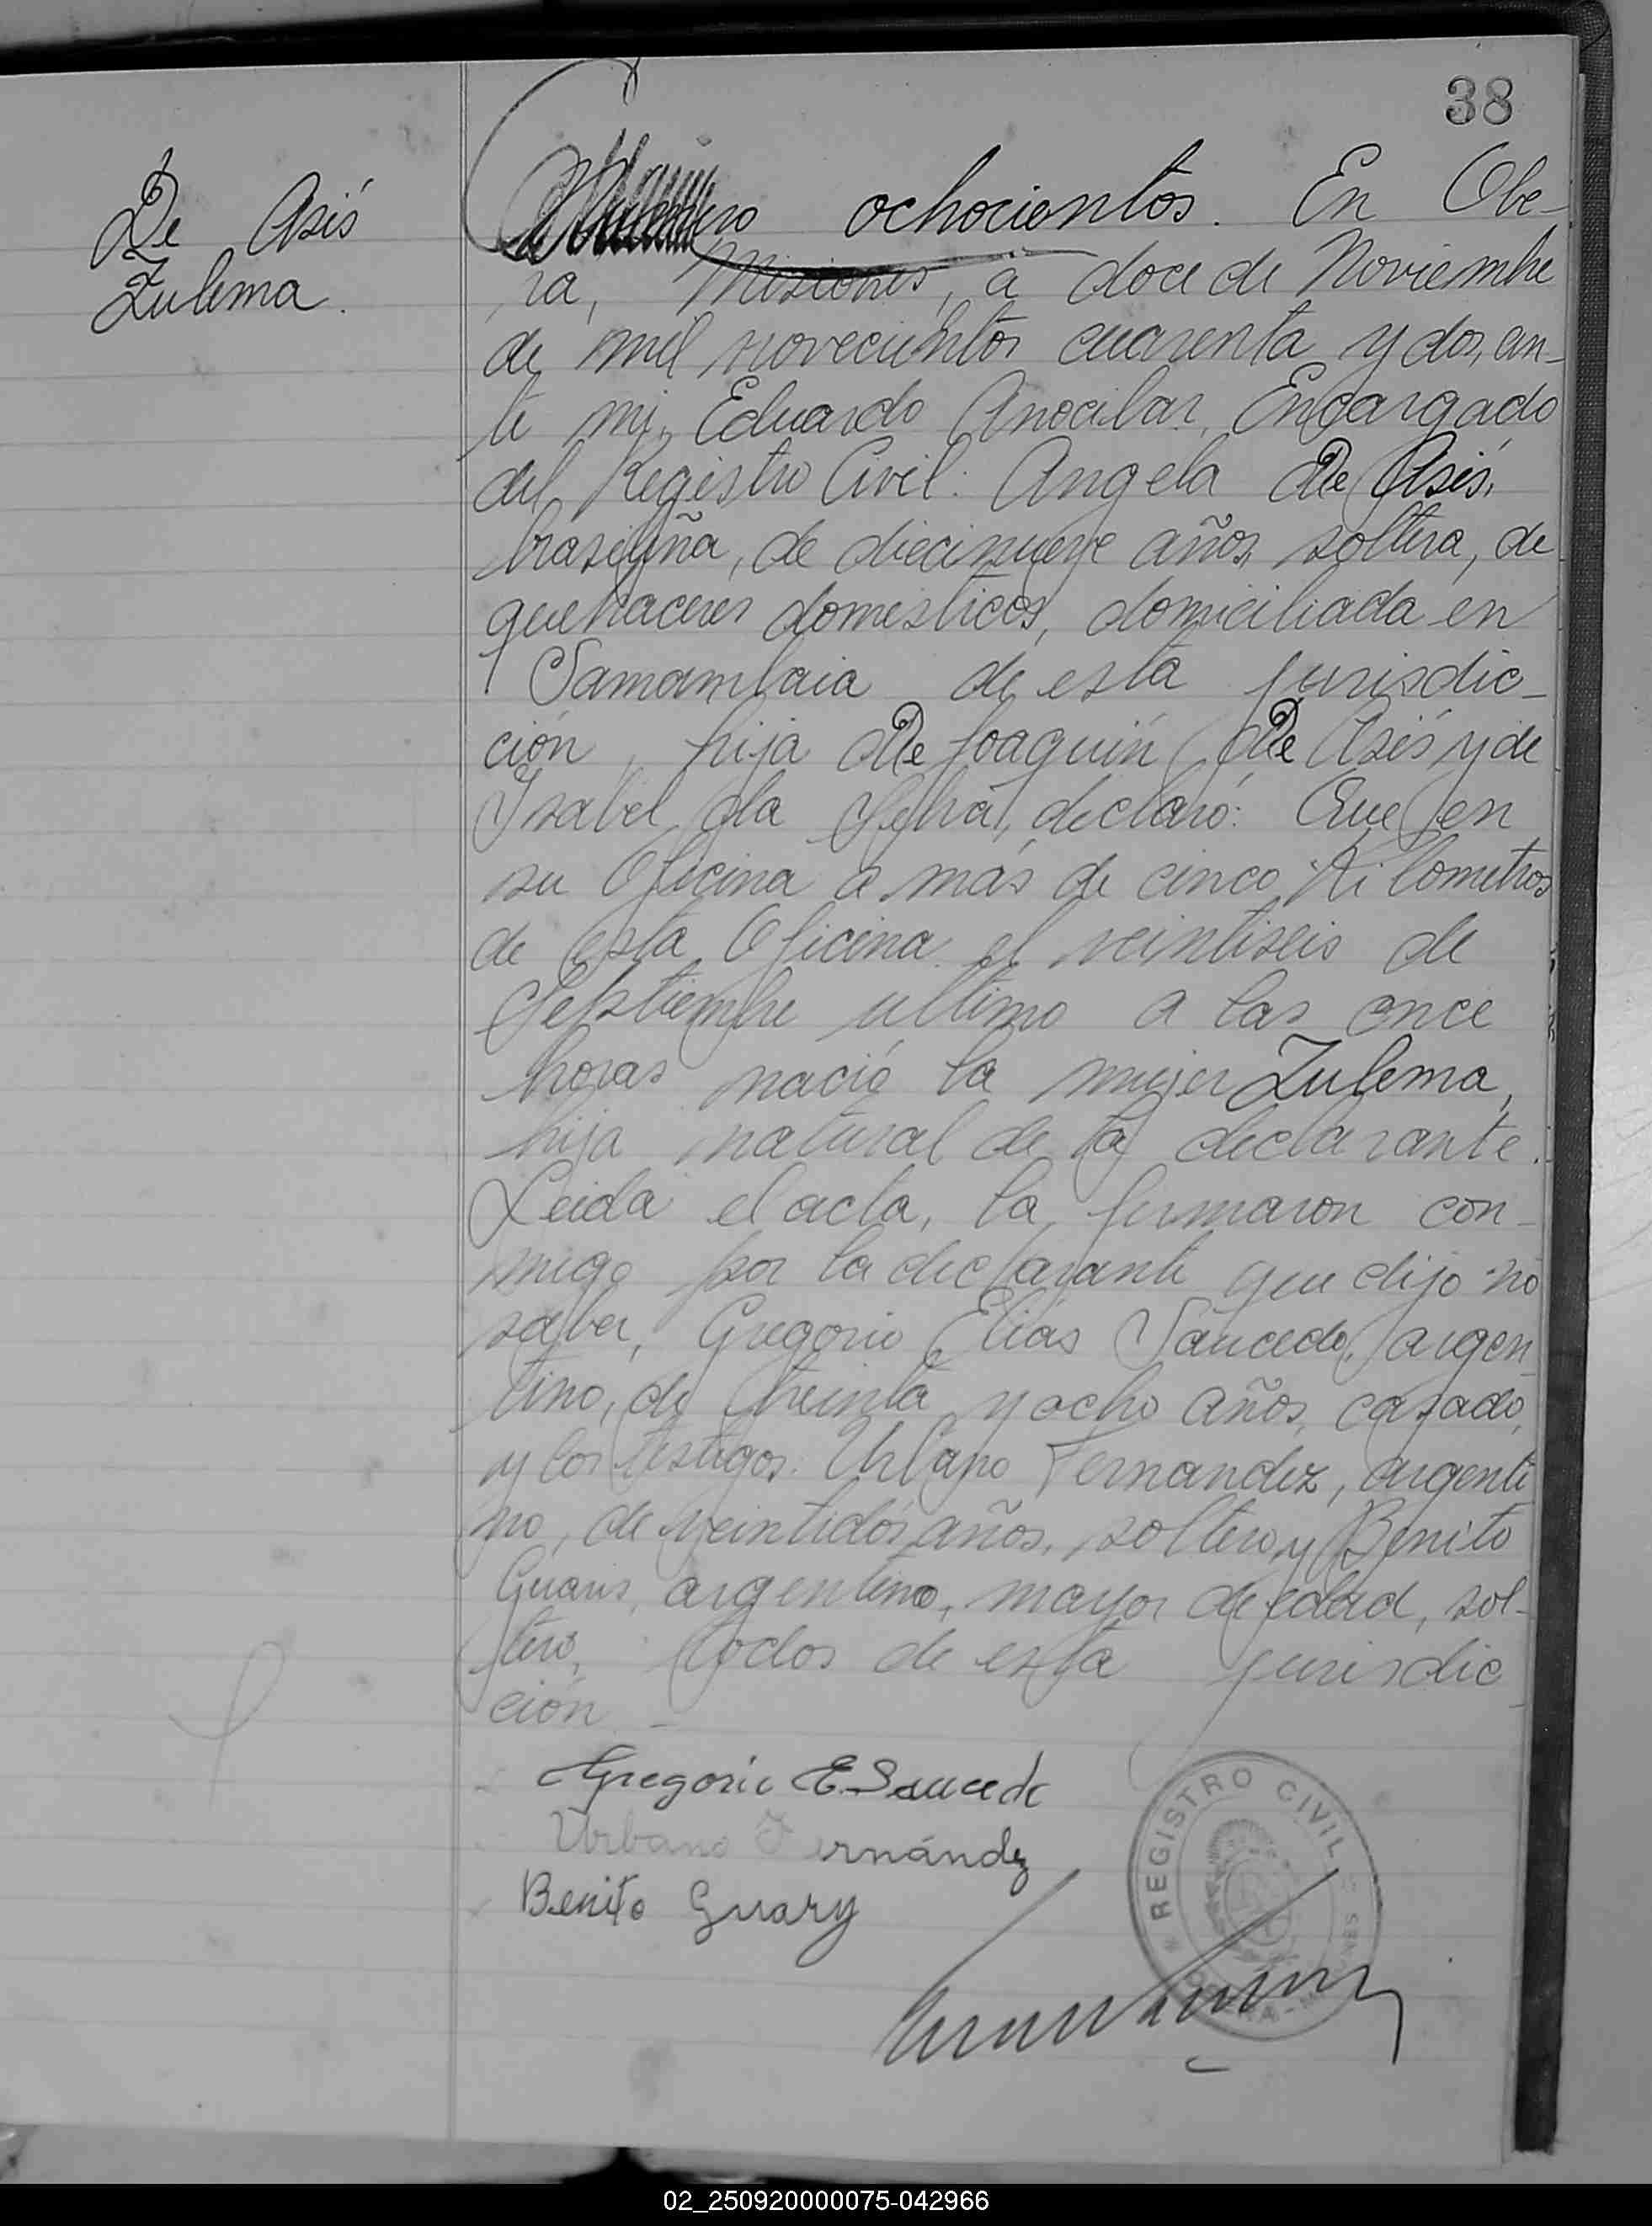 38
De Asis
Zulema.
Número ochocientos. En Obe-
ra, Misiones, a doce de Noviembre
de mil novecientos cuarenta y dos, an-
te mi, Eduardo Anocibar, Encargado
del Registro Civil: Angela De Asis,
brasileña, de diecinueve años, soltera, de
quehaceres domesticos, domiciliada en
Samambaia de esta jurisdic-
ción, hija De Joaquin De Asis y de
Isabel da Silva, declaró: Que en
su Oficina a más de cinco Kilometros
de esta Oficina el veintiseis de
Septiembre ultimo a las once
horas nació la mujer Zulema,
hija natural de la declarante.
Leida el acta, la firmaron con-
migo por la declarante que dijo no
saber, Gregorio Elias Saucedo, argen
tino, de treinta y ocho años, casado,
y los testigos: Urbano Fernandez, argenti
no, de veintidós años, soltero, y Benito
argentino, mayor de edad, sol-
tero, todos de esta jurisdic
ción. -
Gregorio E. Saucedo
Urbano Fernández
Benito Guary
REGISTRO CIVIL
02_250920000075-042966